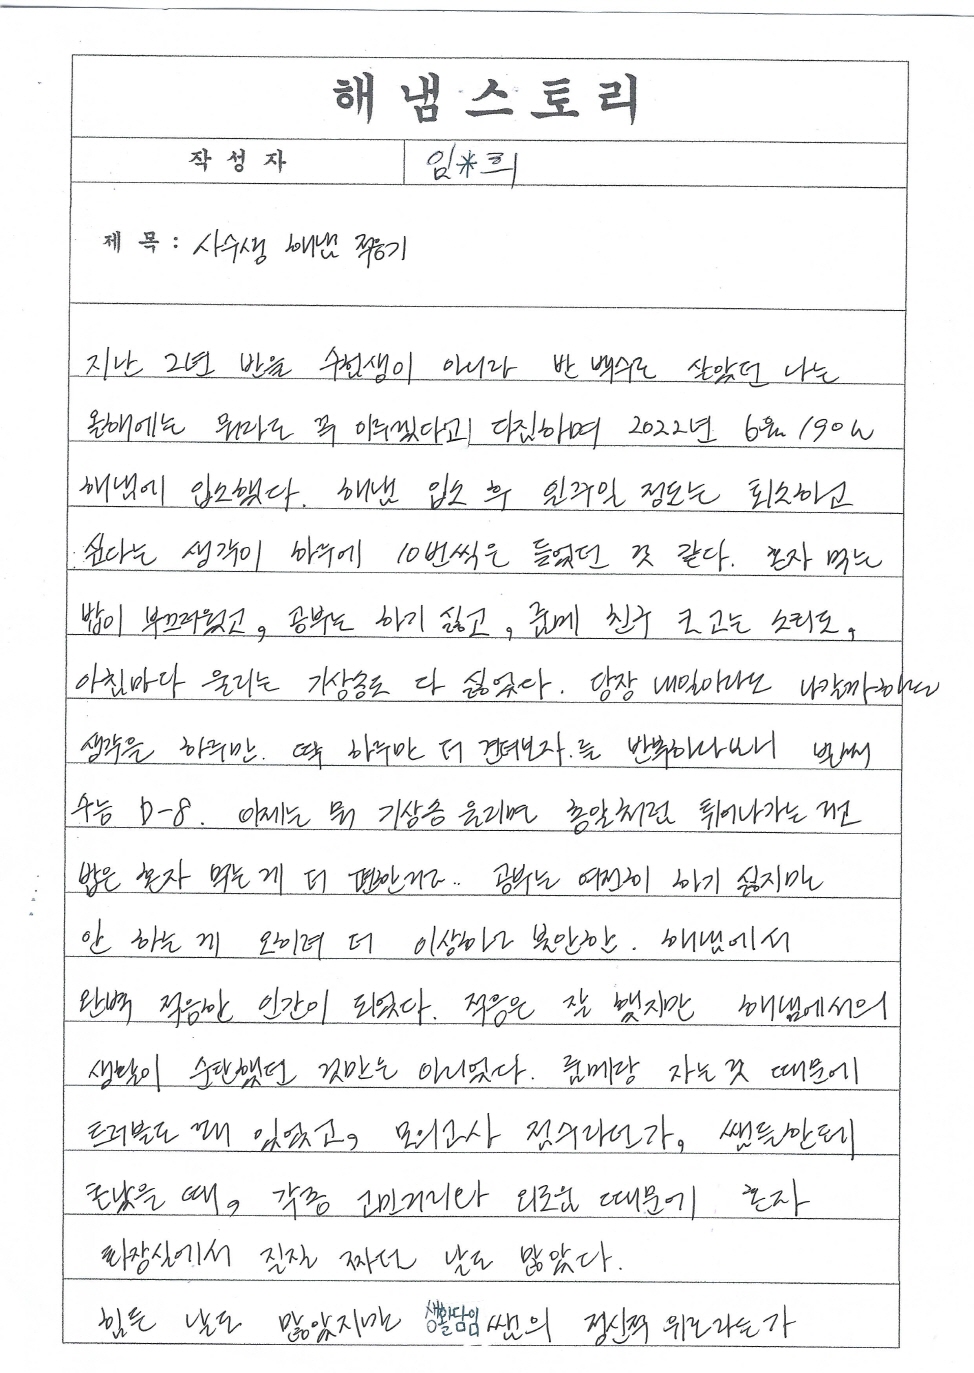 해냄스토리
작성자 임*희
제 목 : 사수생 해냄 적응기
지난 2년 반을 수험생이 아니라 반 백수로 살았던 나는
올해에는 뭐라도 꼭 이루겠다고 다짐하며 2022년 6월 19일
해냄에 입소했다. 해냄 입소 후 일주일 정도는 퇴소하고
싶다는 생각이 하루에 10번씩은 들었던 것 같다. 혼자 먹는
밥이 부끄러웠고, 공부는 하기 싫고, 룸메 친구 코 고는 소리도,
아침마다 울리는 기상송도 다 싫었다. 당장 내일이라도 나갈까하는
생각을 하루만. 딱 하루만 더 견뎌보자.를 반복하다보니 벌써
수능 D-8. 이제는 뭐 기상송 울리면 총알처럼 튀어나가는 건
밥은 혼자 먹는게 더 편안하고.. 공부는 여전히 하기 싫지만
안 하는 게 오히려 더 이상하고 불안한. 해냄에서
완벽 적응한 인간이 되었다. 적응은 잘 했지만 해냄에서의
생활이 순탄했던 것만은 아니었다. 룸메랑 자는 것 때문에
트러블도 꽤 있었고, 모의고사 점수라던가, 쌤들한테
혼났을 때, 각종 고민거리와 외로움 때문에 혼자
화장실에서 질질 짜던 날도 많았다.
힘든 날도 많았지만 생활담임 쌤의 정신적 위로라든가